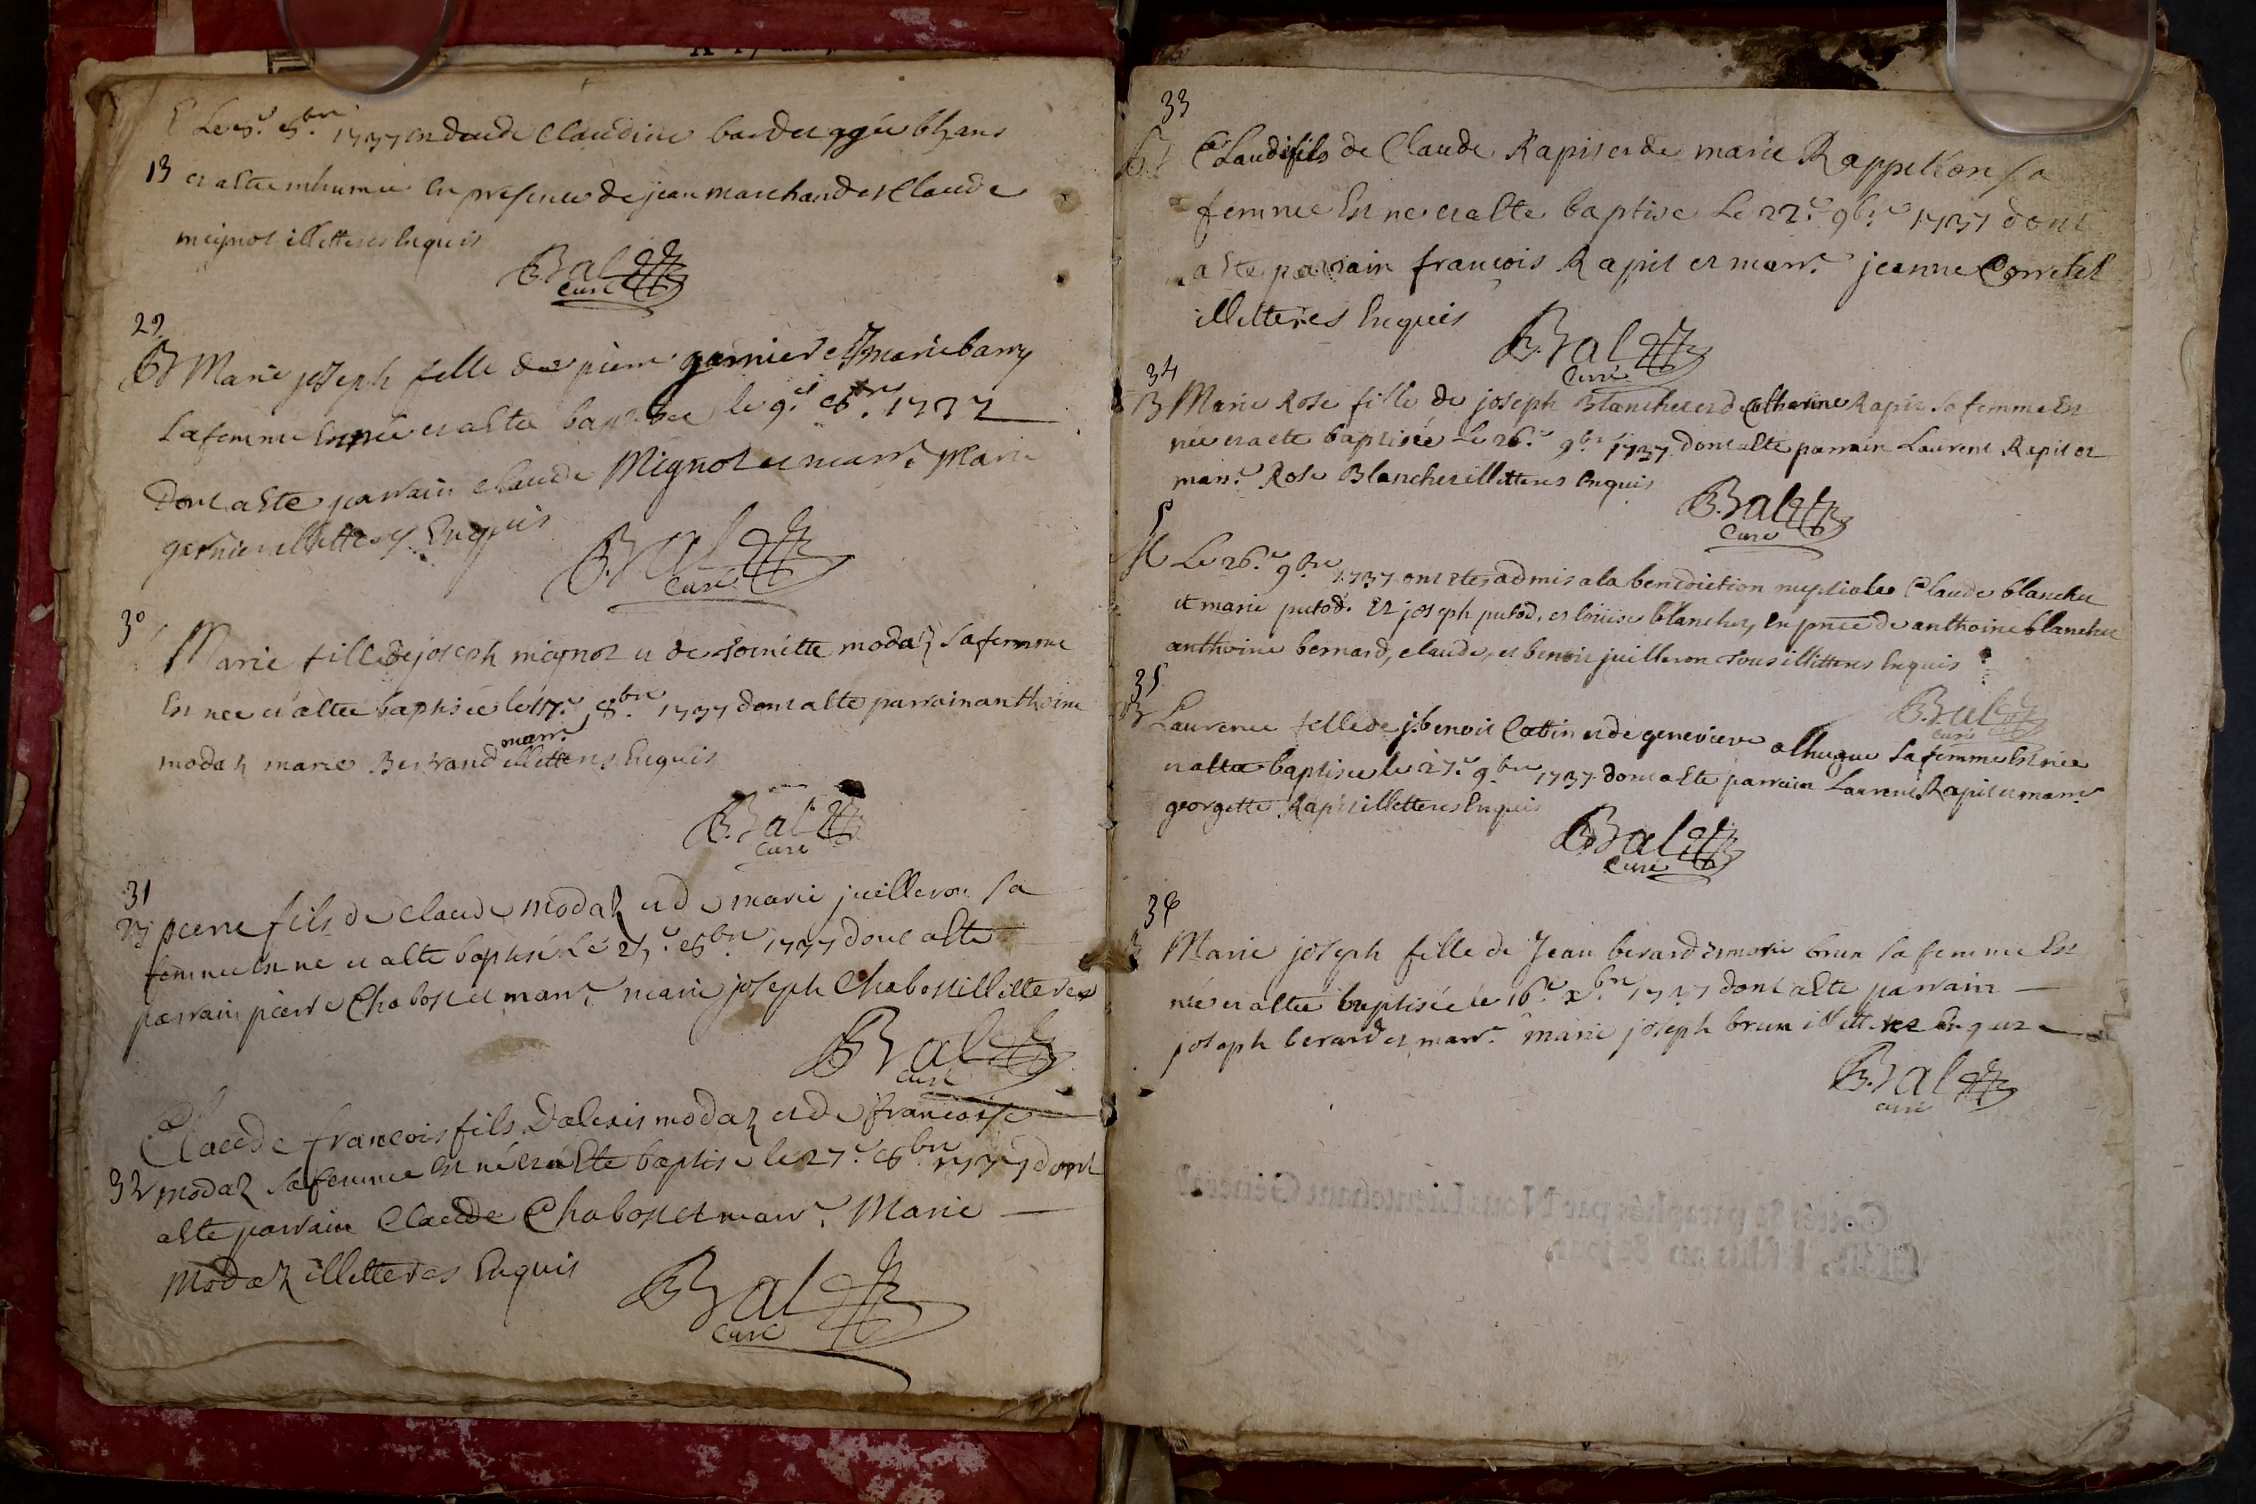 Le 5.e 8.bre 1737 en decede Claudine bardet agée
13
et a esté inhumée En presence de jean marchand et Claude
meynot illetteres Enquis
Bal
Curé
29
B Marie joseph fille de pierre garnier et marie barry
sa femme Est née et a esté baptisée le 9.e 8.bre 1737
dont a esté parrain claude Mignot et marr.e Marie
garnier illetteres Enquis
Bal
Curé
30
Marie fille de joseph mignot et de toinette modaz sa femme
Est née et a esté baptisée le 17.e 8.bre 1737 dont a esté parrain anthoine
marr.e
modaz marie Bertrand illetteres Enquis
Bal
Curé
31
B pierre fils de claude modaz et de marie juilleron sa
femme Est né et a esté baptisé Le 8.bre 1737 dont a esté
parrain pierre Chabost et marr.e marie joseph Chabost illetteres
Bal
Curé
Claude francois fils Dalexis modaz et de francoise
32 modaz sa femme Est né et a Esté baptisé le 27.e 8.bre 1737 dont
a esté parrain Claude Chabost et marr.e Marie
Modaz illetteres Enquis
Bal
Curé
33
B Claudi fils de Claude Rapit et de marie Rappillon sa
femme Est né et a esté baptisé Le 22.e 9b.re 1737 dont
a esté parrain françois Rapit et marr.e jeanne
illetteres Enquis
Bal
Curé
34
B Marie Rose fille de joseph Blanchet et de Catherine Rapit sa femme Est
née et a esté baptisée Le 26.e 9.bre 1737 dont a esté parrain Laurent Rapit et
marr.e Rose Blanchet illetteres Enquis
Bal
Curé
5
M Le 26.e 9.bre 1737 ont etes admis a la benediction nuptiale Claude blanchet
et marie putod. Et joseph putod, et louise blanchet, En pnce de anthoine blanchet
anthoine bernard, claude, et benoit juilleron tous illetteres Enquis
Bal
Curé
35
B Laurence fille de j. benoit Cattin et de genevieve alhugue sa femme Est née
et a esté baptisée le 27.e 9.bre 1737 dont a esté parrain Laurent Rapit et marr.e
georgette Rapit illetteres Enquis
Bal
Curé
36
B Marie joseph fille de Jean berard et marie brun sa femme Est
née et a esté baptisée le 16.e x.bre 1737 dont a esté parrain
joseph berard et marr.e marie joseph brun illetteres Enquis
Bal
Curé